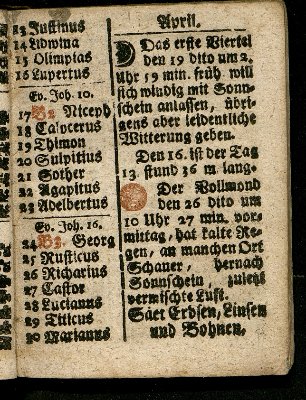 13 Justinus
14 Lidwina
15 Olimpias
16 Lupertus
Ev. Joh. 10.
17 Niceph
18 Calpcerus
19 Thimon
20 Sulpitius
21 Sother
22 Agapitus
23 Adelbertus
Ev. Joh. 16.
24 Georg
25 Rusticus
26 Richarius
27 Castor
28 Lucianus
29 Titicus
30 Marianus
April.
Das erste Viertel
den 19 dito um 2.
Uhr 59 min. früh will
sich windig mit Sonn-
schein anlassen, übri-
gens aber leidentliche
Witterung geben.
Den 16. ist der Tag
13. stund 36 m lang.
Der Vollmond
den 26 dito um
10 Uhr 27 min. vor-
mittag, hat kalte Re-
gen, an manchen Ort
Schauer, hernach
Sonnschein, zuletzt
vermischte Luft.
Säet Erbsen, Linsen
und Bohnen.